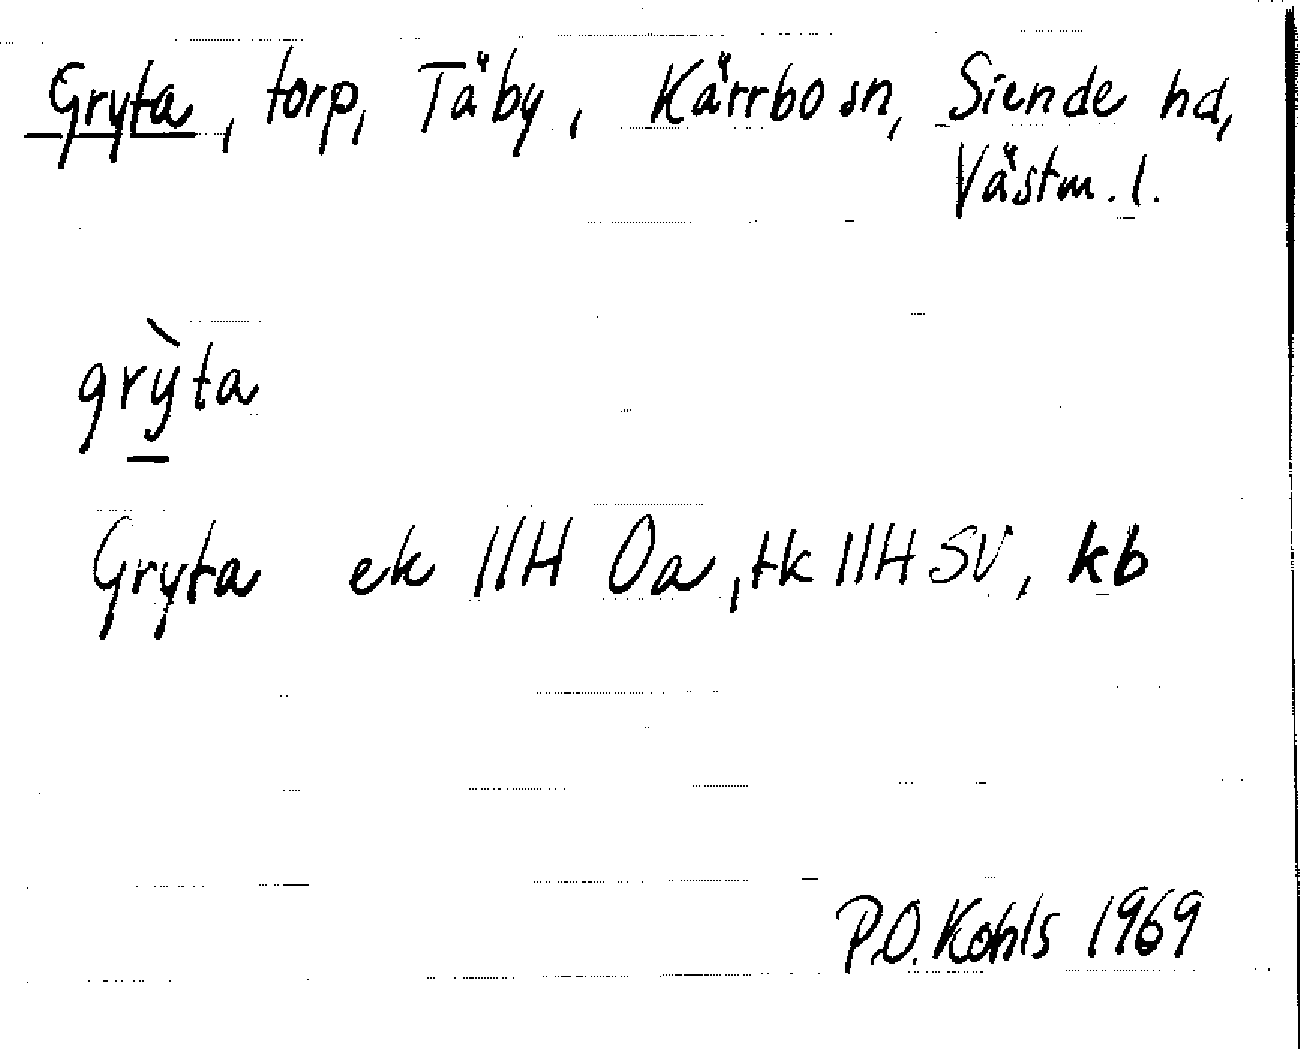 Gryta, torp, Täby, Kärrbo sn, Siende hd,
Västm. l.
grỳta
Gryta ek 11H 0a, tk 11H SV, kb
P.O. Kohls 1969